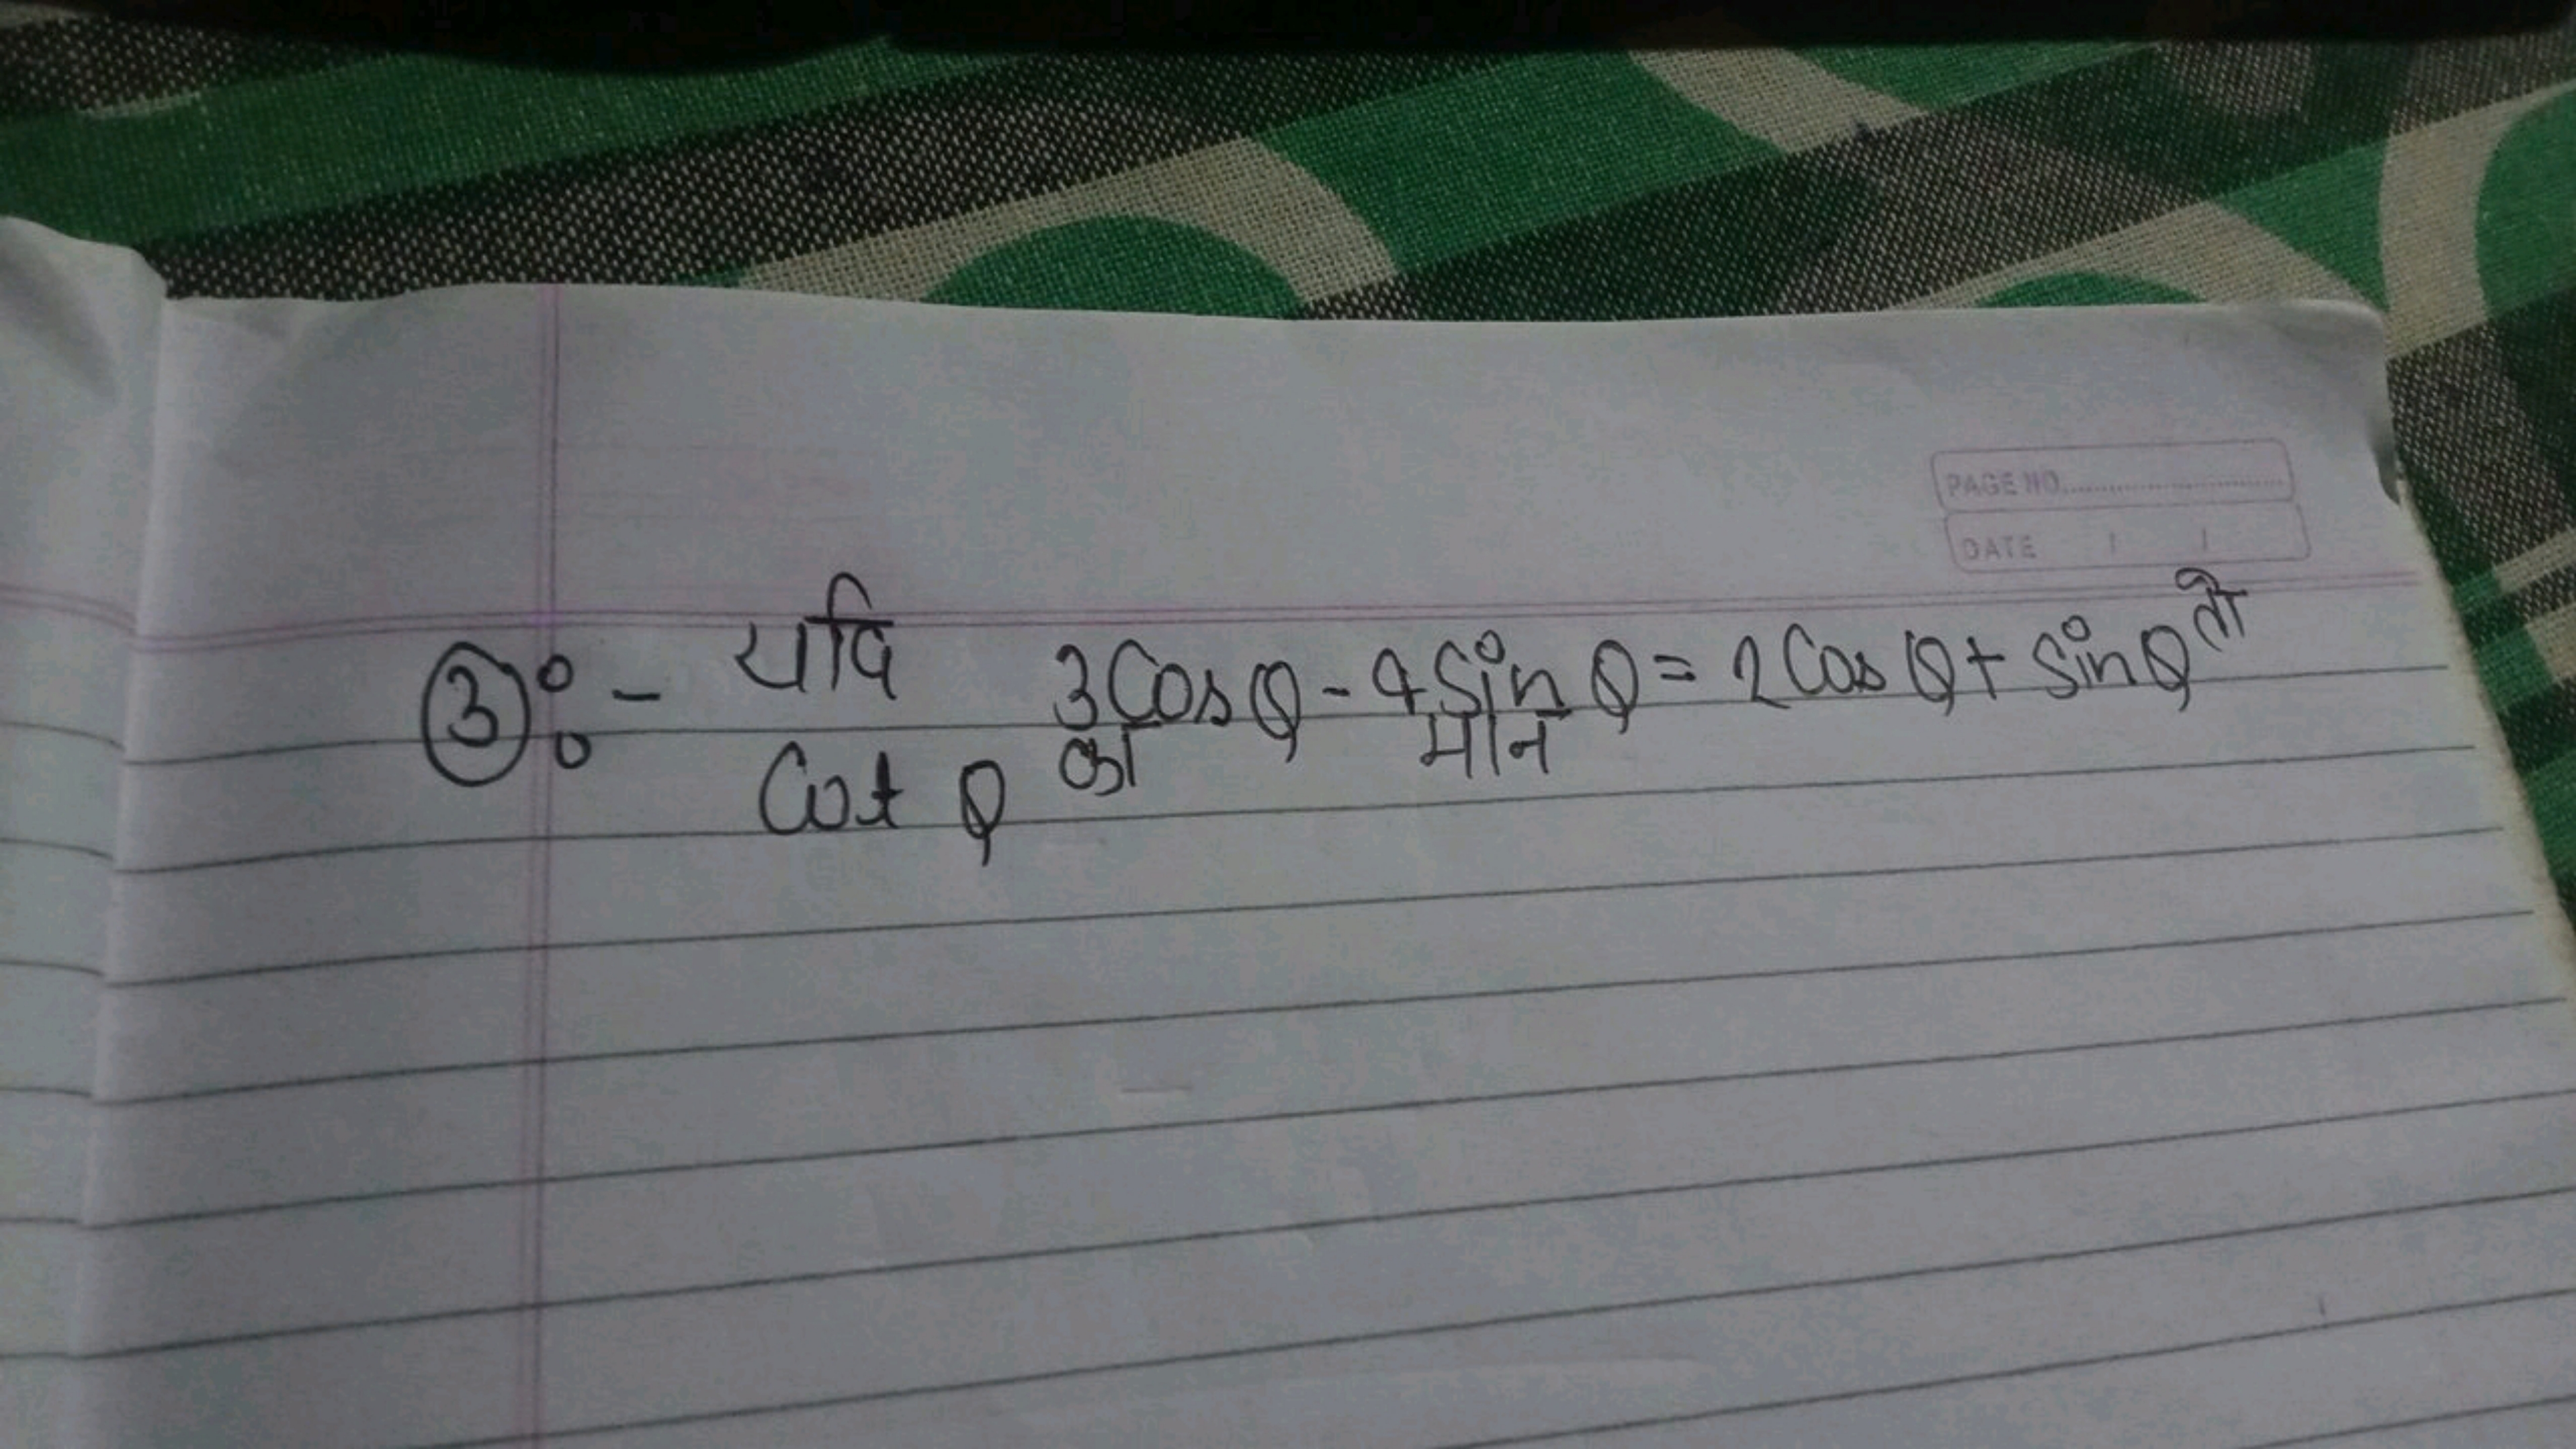 PAGE NO.
DATE / /
③:- यदि 3Cosθ - 4Sinθ = 2Cosθ + Sinθ तो
Cot θ का मान